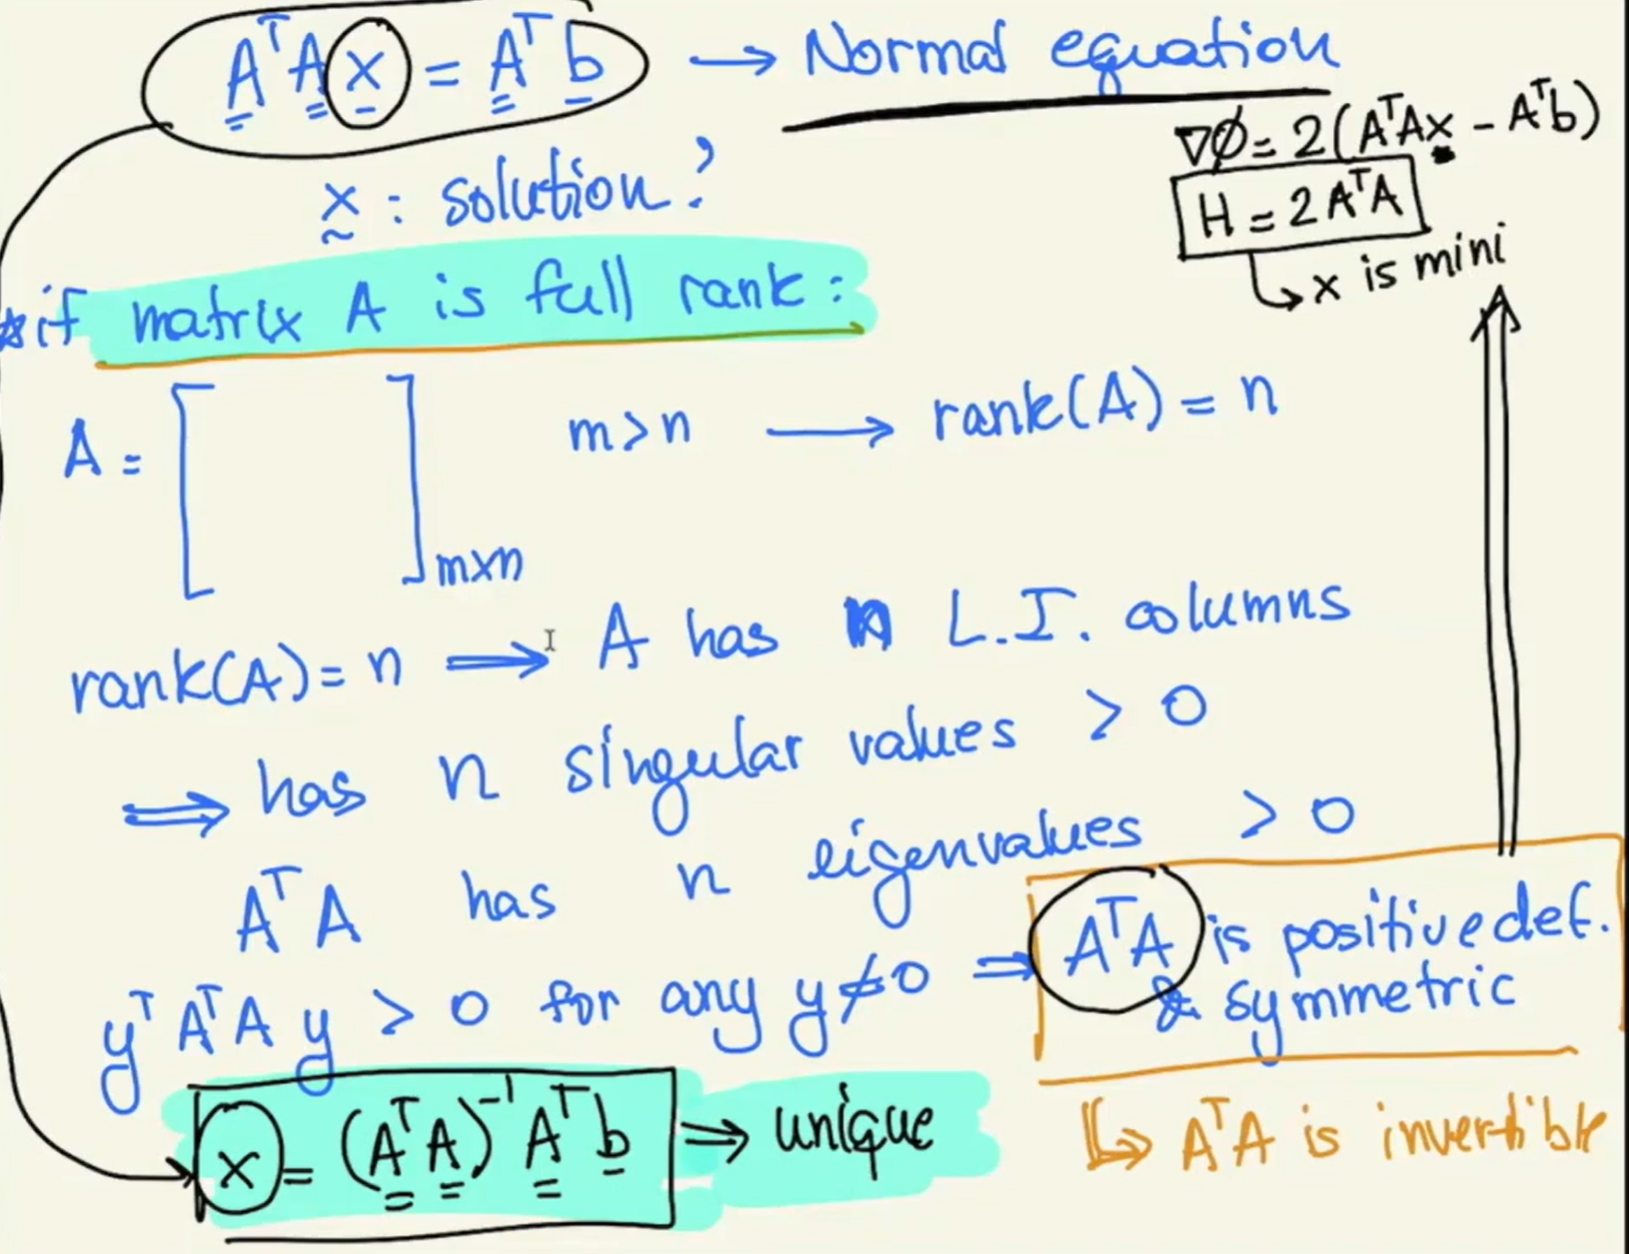 AᵀAx = Aᵀb → Normal equation
∇φ = 2(AᵀAx - Aᵀb)
H = 2AᵀA
↳ x is mini
x : solution?
*if matrix A is full rank:
A = [ ]mxn m>n → rank(A) = n
rank(A) = n ⟹ A has n L.I. columns
⟹ has n singular values > 0
AᵀA has n eigenvalues > 0
yᵀAᵀA y > 0 for any y≠0 ⟹ AᵀA is positive def.
& symmetric
x = (AᵀA)⁻¹Aᵀb ⟹ unique
↳ AᵀA is invertible